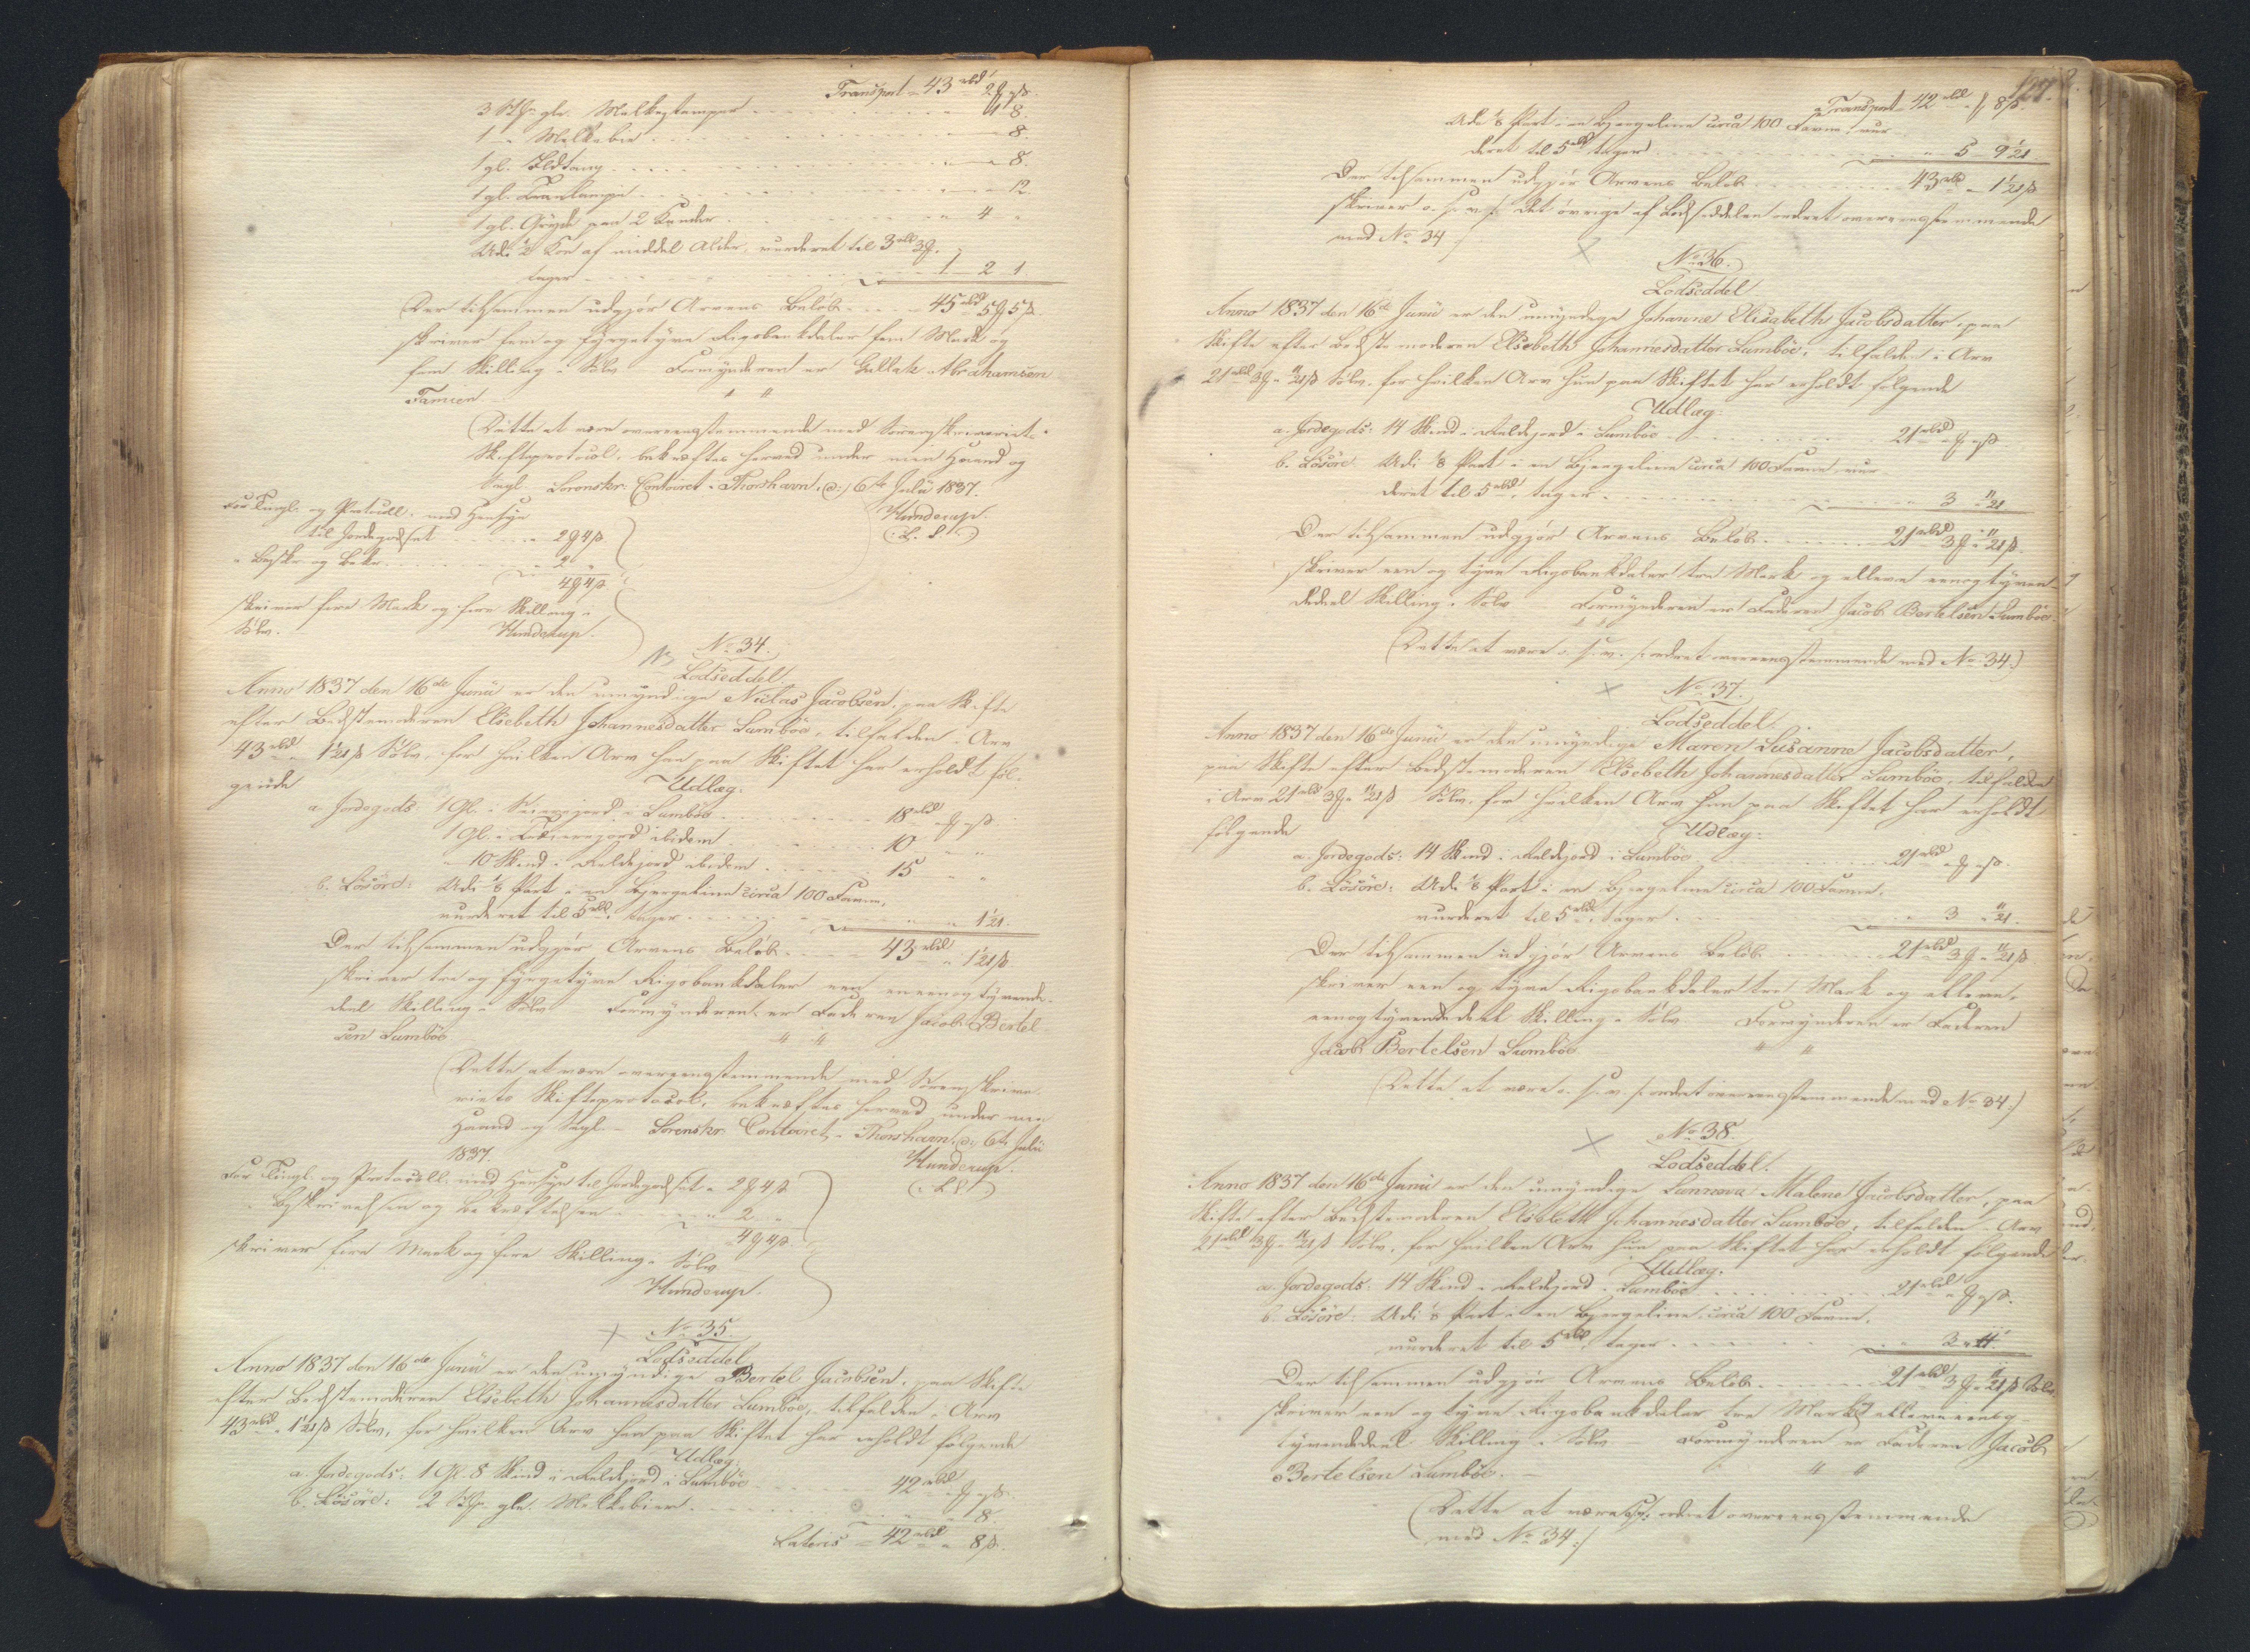 Transport 43 rbd 2 ℳ " ß.
3 Stkr. gle. Melkestamper 4 8.
1 " Melkebie " 8.
1 gl. Ildtang " 8.
1 gl. Tranlampe " 12
1 gl. Gryde paa 2 Kander " 4 "
Udi ½ Koe af middel Alder, vurderet til 3 rbd 3 ℳ.
tager 1 2 1.
Der tilsammen udgjør Arvens Beløb 45 rbd 5 ℳ 5 ß.
skriver fem og fyrgetyve Rigsbankdaler fem Mark og
fem Skilling i Sølv Formynderen er Gullak Abrahamsen
Famien
Dette at være overeensstemmende med Sorenskriveriets
Skifteprotocol, bekræftes herved under min Haand og
Segl. Sorenskr: Contoiret i Thorshavn, d: 6te Julii 1837.
For Tingl. og Protocoll. med Hensyn
til Jordegodset 2 ℳ 4 ß
" Beskr. og Bekr. 2 "
4 ℳ 4 ß.
skriver fire Mark og fire Skilling i
Sølv. Hunderup.
Hunderup.
(: L. S. :)
No 34.
Lodseddel.
Anno 1837 den 16de Junii er den umyndige Niclas Jacobsen, paa Skifte
efter Bedstemoderen Elsebeth Johannesdatter Sumböe, tilfalden i Arv
43 rbd " 1/21 ß Sölv, for hvilken Arv han paa Skiftet har erholdt föl-
gende
Udlæg:
a. Jordegods: 1 Gl. i Sumböe 18 rbd " ℳ " ß.
1 Gl. i ibidem 10 " "
" 10 Skind i ibidem 15 " "
b. Lösöre: Udi 1/8 Part i en Bjergeline circa 100 Favne,
vurderet til 5 rbd, tager " " 1/21.
Der tilsammen udgjør Arvens Beløb 43 rbd " 1/21 ß.
skriver tre og fyrgetyve Rigsbankdaler een eenogtyvende-
deel Skilling i Sölv Formynderen er Faderen Jacob Bertel-
sen Sumböe
Dette at være overeensstemmende med Sorenskrive-
riets Skifteprotocol, bekræftes herved under min
Haand og Segl. Sorenskr. Contoiret i Thorshavn, d: 6te Julii
1837.
Hunderup.
(: L. S. :)
For Tingl. og Protocoll. med Hensyn til Jordegodset " 2 ℳ 4 ß
" Beskrivelsen og Bekræftelsen " 2 "
4 ℳ 4 ß.
skriver fire Mark og fire Skilling i Sölv
Hunderup.
No 35.
Lodseddel
Anno 1837 den 16de Junii er den umyndige Bertel Jacobsen, paa Skifte
efter Bedstemoderen Elsebeth Johannesdatter Sumböe, tilfalden i Arv
43 rbd " 1/21 ß Sölv, for hvilken Arv han paa Skiftet har erholdt fölgende
Udlæg:
a. Jordegods: 1 Gl. 8 Skind i Sumböe 42 rbd " ℳ " ß.
b. Lösöre: 2 Stkr. gle. Melkebier " " 8.
Lateris 42 rbd " 8 ß.
127.
Transport 42 rbd " ℳ 8 ß.
Udi 1/8 Part i en Bjergeline circa 100 Favne, vur-
deret til 5 rbd tager " 5 9 1/21
Der tilsammen udgjør Arvens Beløb 43 rbd " 1/21 ß
skriver o. s. v. /: det övrige af Lodseddelen ordret overeensstemmende
med No 34 :/
No 36.
Lodseddel
Anno 1837 den 16de Junii er den umyndige Johanne Elisabeth Jacobsdatter, paa
Skifte efter Bedstemoderen Elsebeth Johannesdatter Sumböe, tilfalden i Arv
21 rbd 3 ℳ " 11/21 ß Sölv, for hvilken Arv hun paa Skiftet har erholdt fölgende
Udlæg:
a. Jordegods: 14 Skind i Sumböe 21 rbd " ℳ " ß.
b. Lösöre: Udi 1/8 Part i en Bjergeline circa 100 Favne, vur-
deret til 5 rbd, tager " 3 " 11/21
Der tilsammen udgjør Arvens Beløb 21 rbd 3 ℳ " 11/21 ß.
skriver een og tyve Rigsbankdaler tre Mark og elleve eenogtyven-
dedeel Skilling i Sölv Formynderen er Faderen Jacob Bertelsen Sumböe.
(Dette at være o. s. v. /: ordret overeensstemmende med No 34 :/)
No 37.
Lodseddel.
Anno 1837 den 16de Junii er den umyndige Maren Susanne Jacobsdatter,
paa Skifte efter Bedstemoderen Elsebeth Johannesdatter Sumböe, tilfalden
i Arv 21 rbd 3 ℳ " 11/21 ß Sölv, for hvilken Arv hun paa Skiftet har erholdt
fölgende
Udlæg:
a. Jordegods: 14 Skind i Sumböe 21 rbd " ℳ " ß.
b. Lösöre: Udi 1/8 Part i en Bjergeline circa 100 Favne,
vurderet til 5 rbd, tager " 3 " 11/21.
Der tilsammen udgjør Arvens Beløb 21 rbd 3 ℳ " 11/21 ß
skriver een og tyve Rigsbankdaler tre Mark og elleve
eenogtyvendedeel Skilling i Sölv Formynderen er Faderen
Jacob Bertelsen Sumböe
(Dette at være o. s. v. /: ordret overeensstemmende med No 34 :/)
No 38.
Lodseddel.
Anno 1837 den 16de Junii er den umyndige Sunneva Malene Jacobsdatter, paa
Skifte efter Bedstemoderen Elsebeth Johannesdatter Sumböe, tilfalden i Arv
21 rbd 3 ℳ " 11/21 ß Sölv, for hvilken Arv hun paa Skiftet har erholdt fölgende
Udlæg:
a. Jordegods: 14 Skind i Sumböe 21 rbd " ℳ " ß.
b. Lösöre: Udi 1/8 Part i en Bjergeline, circa 100 Favne,
vurderet til 5 rbd, tager " 3 " 11.
Der tilsammen udgjør Arvens Beløb 21 rbd 3 ℳ " 11/21 ß Sölv
skriver een og tyve Rigsbankdaler tre Mark og elleve eenog-
tyvendedeel Skilling i Sölv Formynderen er Faderen Jacob
Bertelsen Sumböe.
(Dette at være /: ordret overeensstemmende
med No 34 :/